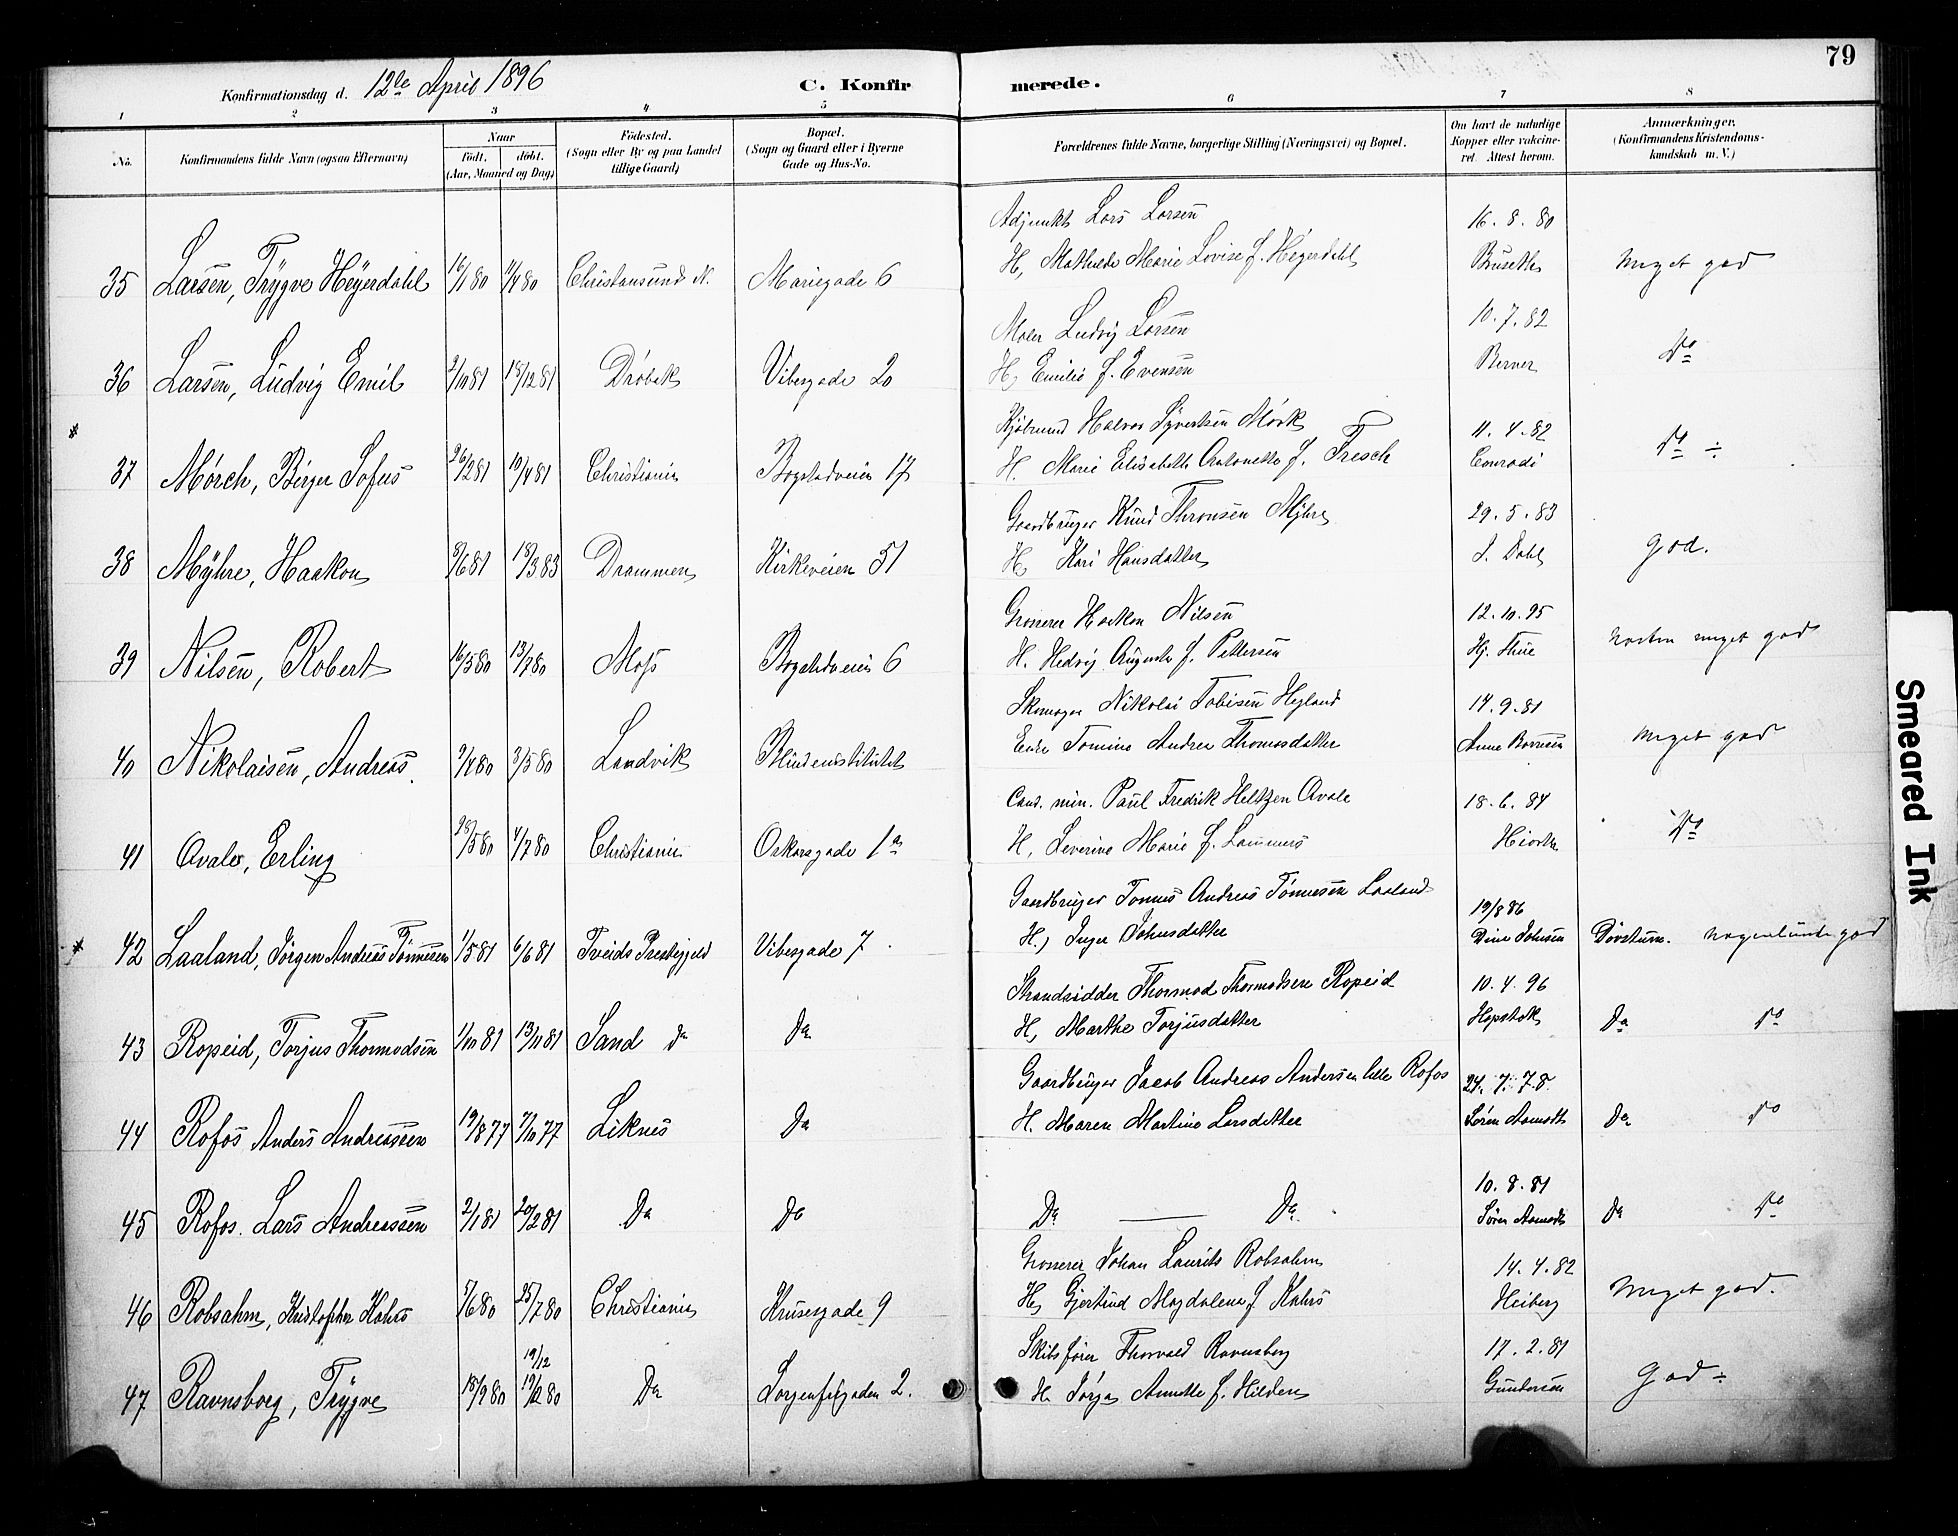 79
Konfirmationsdag d. 12te April 1896
C. Konfirmerede.
1 2 3 4 5 6 7 8
No.
Konfirmandens fulde Navn (ogsaa Efternavn)
Naar
födt. döbt.
(Aar, Maaned og Dag)
Födested.
(Sogn eller By og paa Landet
tillige Gaard)
Bopæl.
(Sogn og Gaard eller i Byerne
Gade og Hus-No.
Forældrenes fulde Navne, borgerlige Stilling (Næringsvei) og Bopæl.
Om havt de naturlige
Kopper eller vakcine-
ret. Attest herom.
Anmærkninger.
(Konfirmandens Kristendoms-
kundskab m. V.)
Adjunkt Lars Larsen 16. 8. 80
35 Larsen, Trygve Heyerdahl 16/1 80 11/4 80 Christiansund N. Mariegade 6 H, Mathilde Marie Lovise f. Heyerdahl Buseth Meget god
Maler Ludvig Larsen 10. 7. 82
36 Larsen, Ludvig Emil 2/10 81 18/12 81 Drøbak Vibesgade 20 H, Emilie f. Evensen Berner Do
Kjøbmand Halvor Syvertsen Mørk 11. 4. 82
37 Mørch, Birger Sofus 26/2 81 19/4 81 Christiania Bogstadveien 17 H. Marie Elisabeth Antonette f. Fresch Conradi Do ÷
Gaardbruger Knud Thronsen Myhre 29. 5. 83
38 Myhre, Haakon /6 81 18/3 83 Drammen Kirkeveien 51 H, Kari Hansdatter J. Dahl god.
Grosserer Haakon Nilsen 12. 10. 95
39 Nilsen, Robert 16/5 80 13/7 80 Moss Bogstadveien 6 H. Hedvig Augusta f. Pettersen Hj. Thue næsten meget god
Skomager Nikolai Tobisen Hegland 14. 9. 81
40 Nikolaisen, Andreas. 2/4 80 3/5 80 Landvik Blindeinstitutet Enke Tomine Andrea Thomasdatter Anne Borresen Meget god
Cand. min. Paul Fredrik Heltzen Qvale 18. 6. 84
41 Qvale, Erling 28/5 80 4/7 80 Christiania Oskarsgade 1a H, Severine Marie f. Lammers Hiorth Do
Gaardbruger Tønnes Andreas Tønnesen Laaland 19/8 86
42 Laaland, Jörgen Andreas Tønnesen 1/5 81 6/6 81 Tveids Prestegjeld Vibesgade 7 H, Inger Johnsdatter Dine Johnsen Døvstum. nogenlunde god
Strandsidder Thormod Thormodsen Ropeid 10. 4. 96
43 Ropeid, Torjus Thormodsen 1/10 81 13/11 81 Sand do Do H, Marthe Torjusdatter Hopstok Do do
Gaardbruger Jacob Andreas Andersen lille Rofos 24. 7. 78.
44 Rofos Anders Andreassen 19/8 77 7/10 77 Liknes Do H. Maren Martine Larsdatter Søren Aamodt Do do
10. 8. 81
45 Rofos. Lars Andreassen 2/1 81 20/2 81 Do Do Do — Do. Søren Aamodt Do do
Grosserer Johan Laurits Robsahm 14. 4. 82
46 Robsahm, Kristopher Kahrs /6 80 25/7 80 Christiania Krusesgade 9 H, Gjertrud Magdalene f Kahrs Heiberg Meget god.
19/12 Skibsfører Thorvald Ravnsborg 17. 2. 81
47 Ravnsborg, Trygve 18/9 80 19/12 80 Do Sorgenfrigaden 2. H. Jørga Annette f. Hilden Gundersen God ÷
Smeared Ink